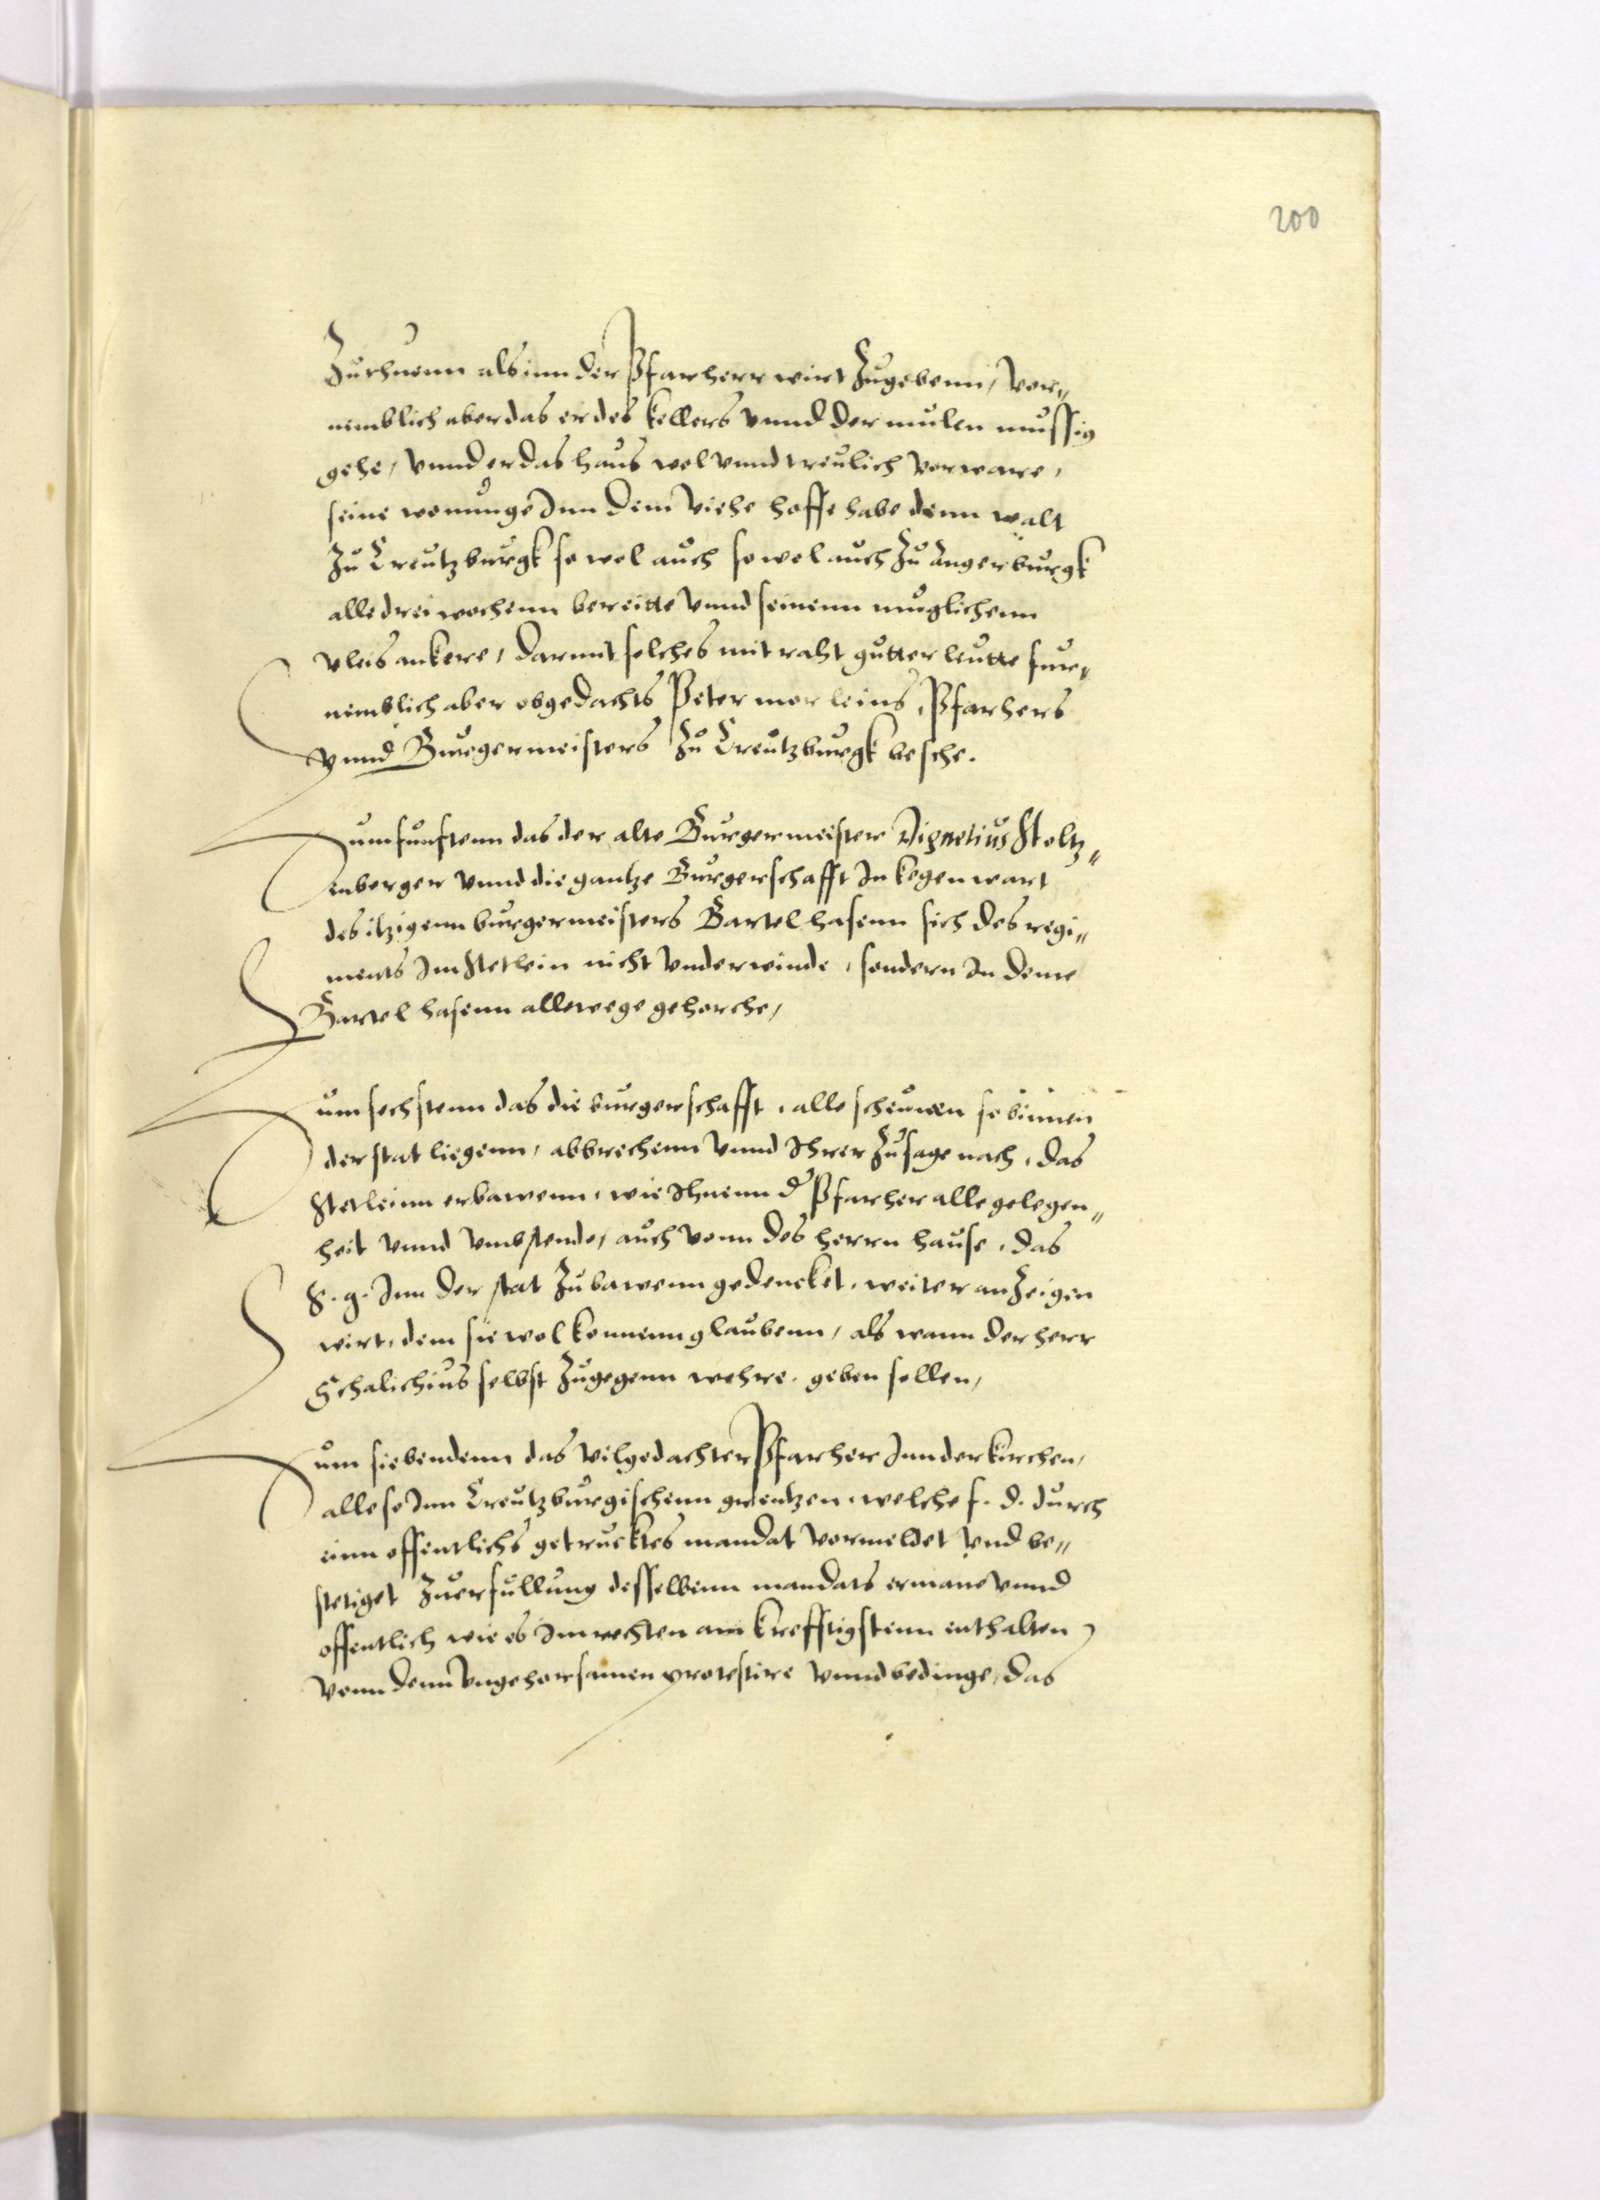 200
Zuthuenn als inn der Pfarherr wirt Zugebenn, vor„
nemblich aber das er des kellers vnnd der mulen mussig
gehe, vnnd er das haus wol vnnd treulich vorware,
seine wonunge Inn dem viehe hoffe habe denn walt
Zu Creutzburgk so wol auch so wol auch Zu Angerburgk
alle drei wochenn bereitte vnnd seinenn muglichenn
vleis ankere, darmit solches mit raht gutter leutte fur„
nemblich aber obgedachts Peter morleins, Pfarhers
vnnd Burgermeisters Zu Creutzburgk besche.
Zum funftenn das der alte Burgermeister Stoltz„
enberger vnnd die gantze Burgerschafft In kegenwart
des itzigenn burgermeisters Bartel hasenn sich des regi„
ments Im Stetlein nicht vnderwinde, sondern In deme
Bartel hasenn allewege gehorche,
Zum sechstenn das die burgerschafft, alle scheunen so binnen
der stat liegenn, abbrechenn vnnd Ihrer Zusage nach, das
Stetleinn erbawenn, wie Ihnenn d Pfarher alle gelegen„
heit vnnd vmbstende, auch vonn des herrn hause, das
S. g. Inn der stat Zubawenn gedencket, weiter anZeigen
wirt, dem sie wol konnenn glaubenn, als wann der herr
Schalichius selbst Zugegenn wehre. geben sollen,
Zum siebendenn das vilgedachter Pfarher Inn der kirchen,
alle so Inn Creutzburgischenn grentzen, welche f. d. durch
einn offentlichs getrucktes mandat vormeldet vnd be„
stetiget Zuerfullung desselbenn mandats ermane vnnd
offentlich wie es Im rechten am krefftigstenn enthalten
vonn denn vngehorsamen protestire vnnd bedinge, das